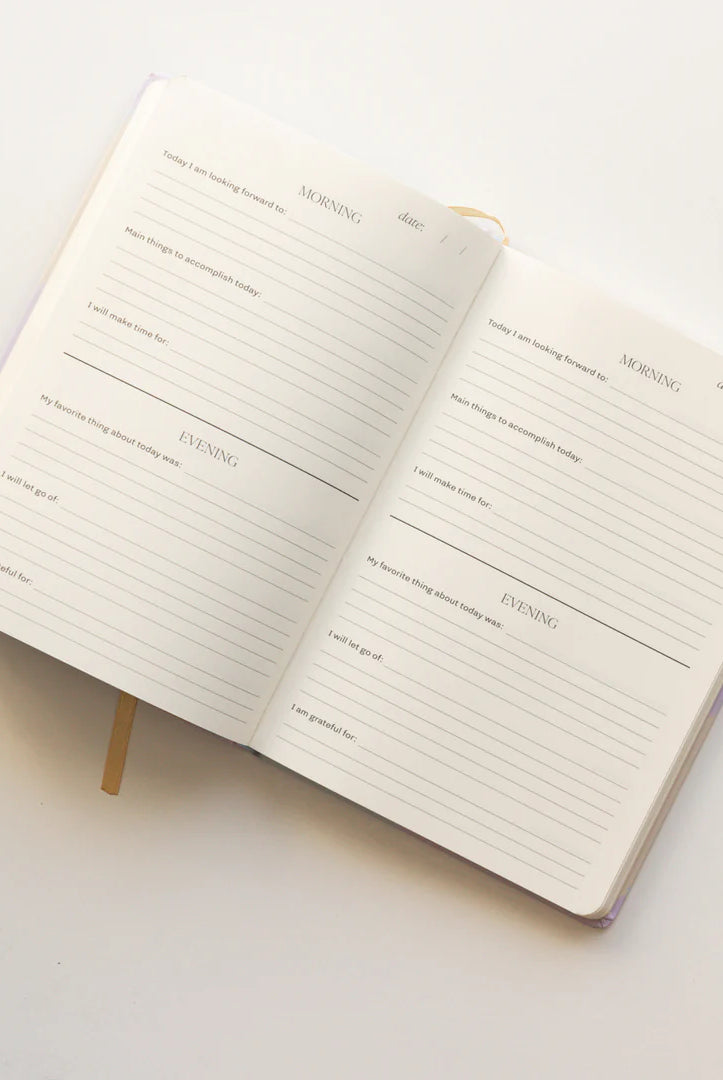 MORNING
date: / /
Today I am looking forward to:
Main things to accomplish today:
I will make time for:
EVENING
My favorite thing about today was:
I will let go of:
eful for:
MORNING
Today I am looking forward to:
Main things to accomplish today:
I will make time for:
EVENING
My favorite thing about today was:
I will let go of:
I am grateful for: